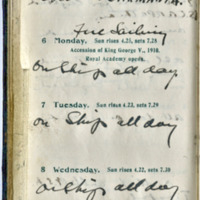 fine Sailing
6 Monday, Sun rises 4.25, sets 7.28
Accession of King George V., 1910.
Royal Academy opens.
on Ship all day
7 Tuesday. Sun rises 4.23, sets 7.29
on Ship all day
8 Wednesday. Sun rises 4.22, sets 7.30
on ship all day